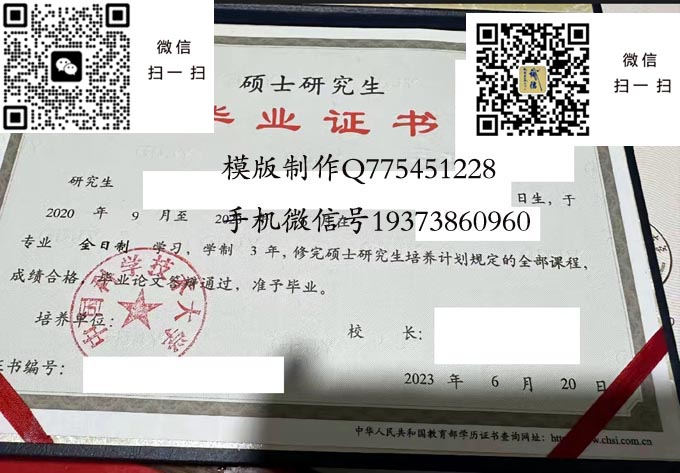 微信
扫一扫
微信
扫一扫
硕士研究生
毕业证书
模版制作Q775451228
研究生
日生，于
2020 年 9 月至
手机微信号19373860960
专业 全日制 学习，学制 3 年，修完硕士研究生培养计划规定的全部课程，
成绩合格，毕业论文答辩通过，准予毕业。
中国科学技术大学
培养单位：
校 长：
证书编号：
2023 年 6 月 20 日
中华人民共和国教育部学历证书查询网址：http://www.chsi.com.cn